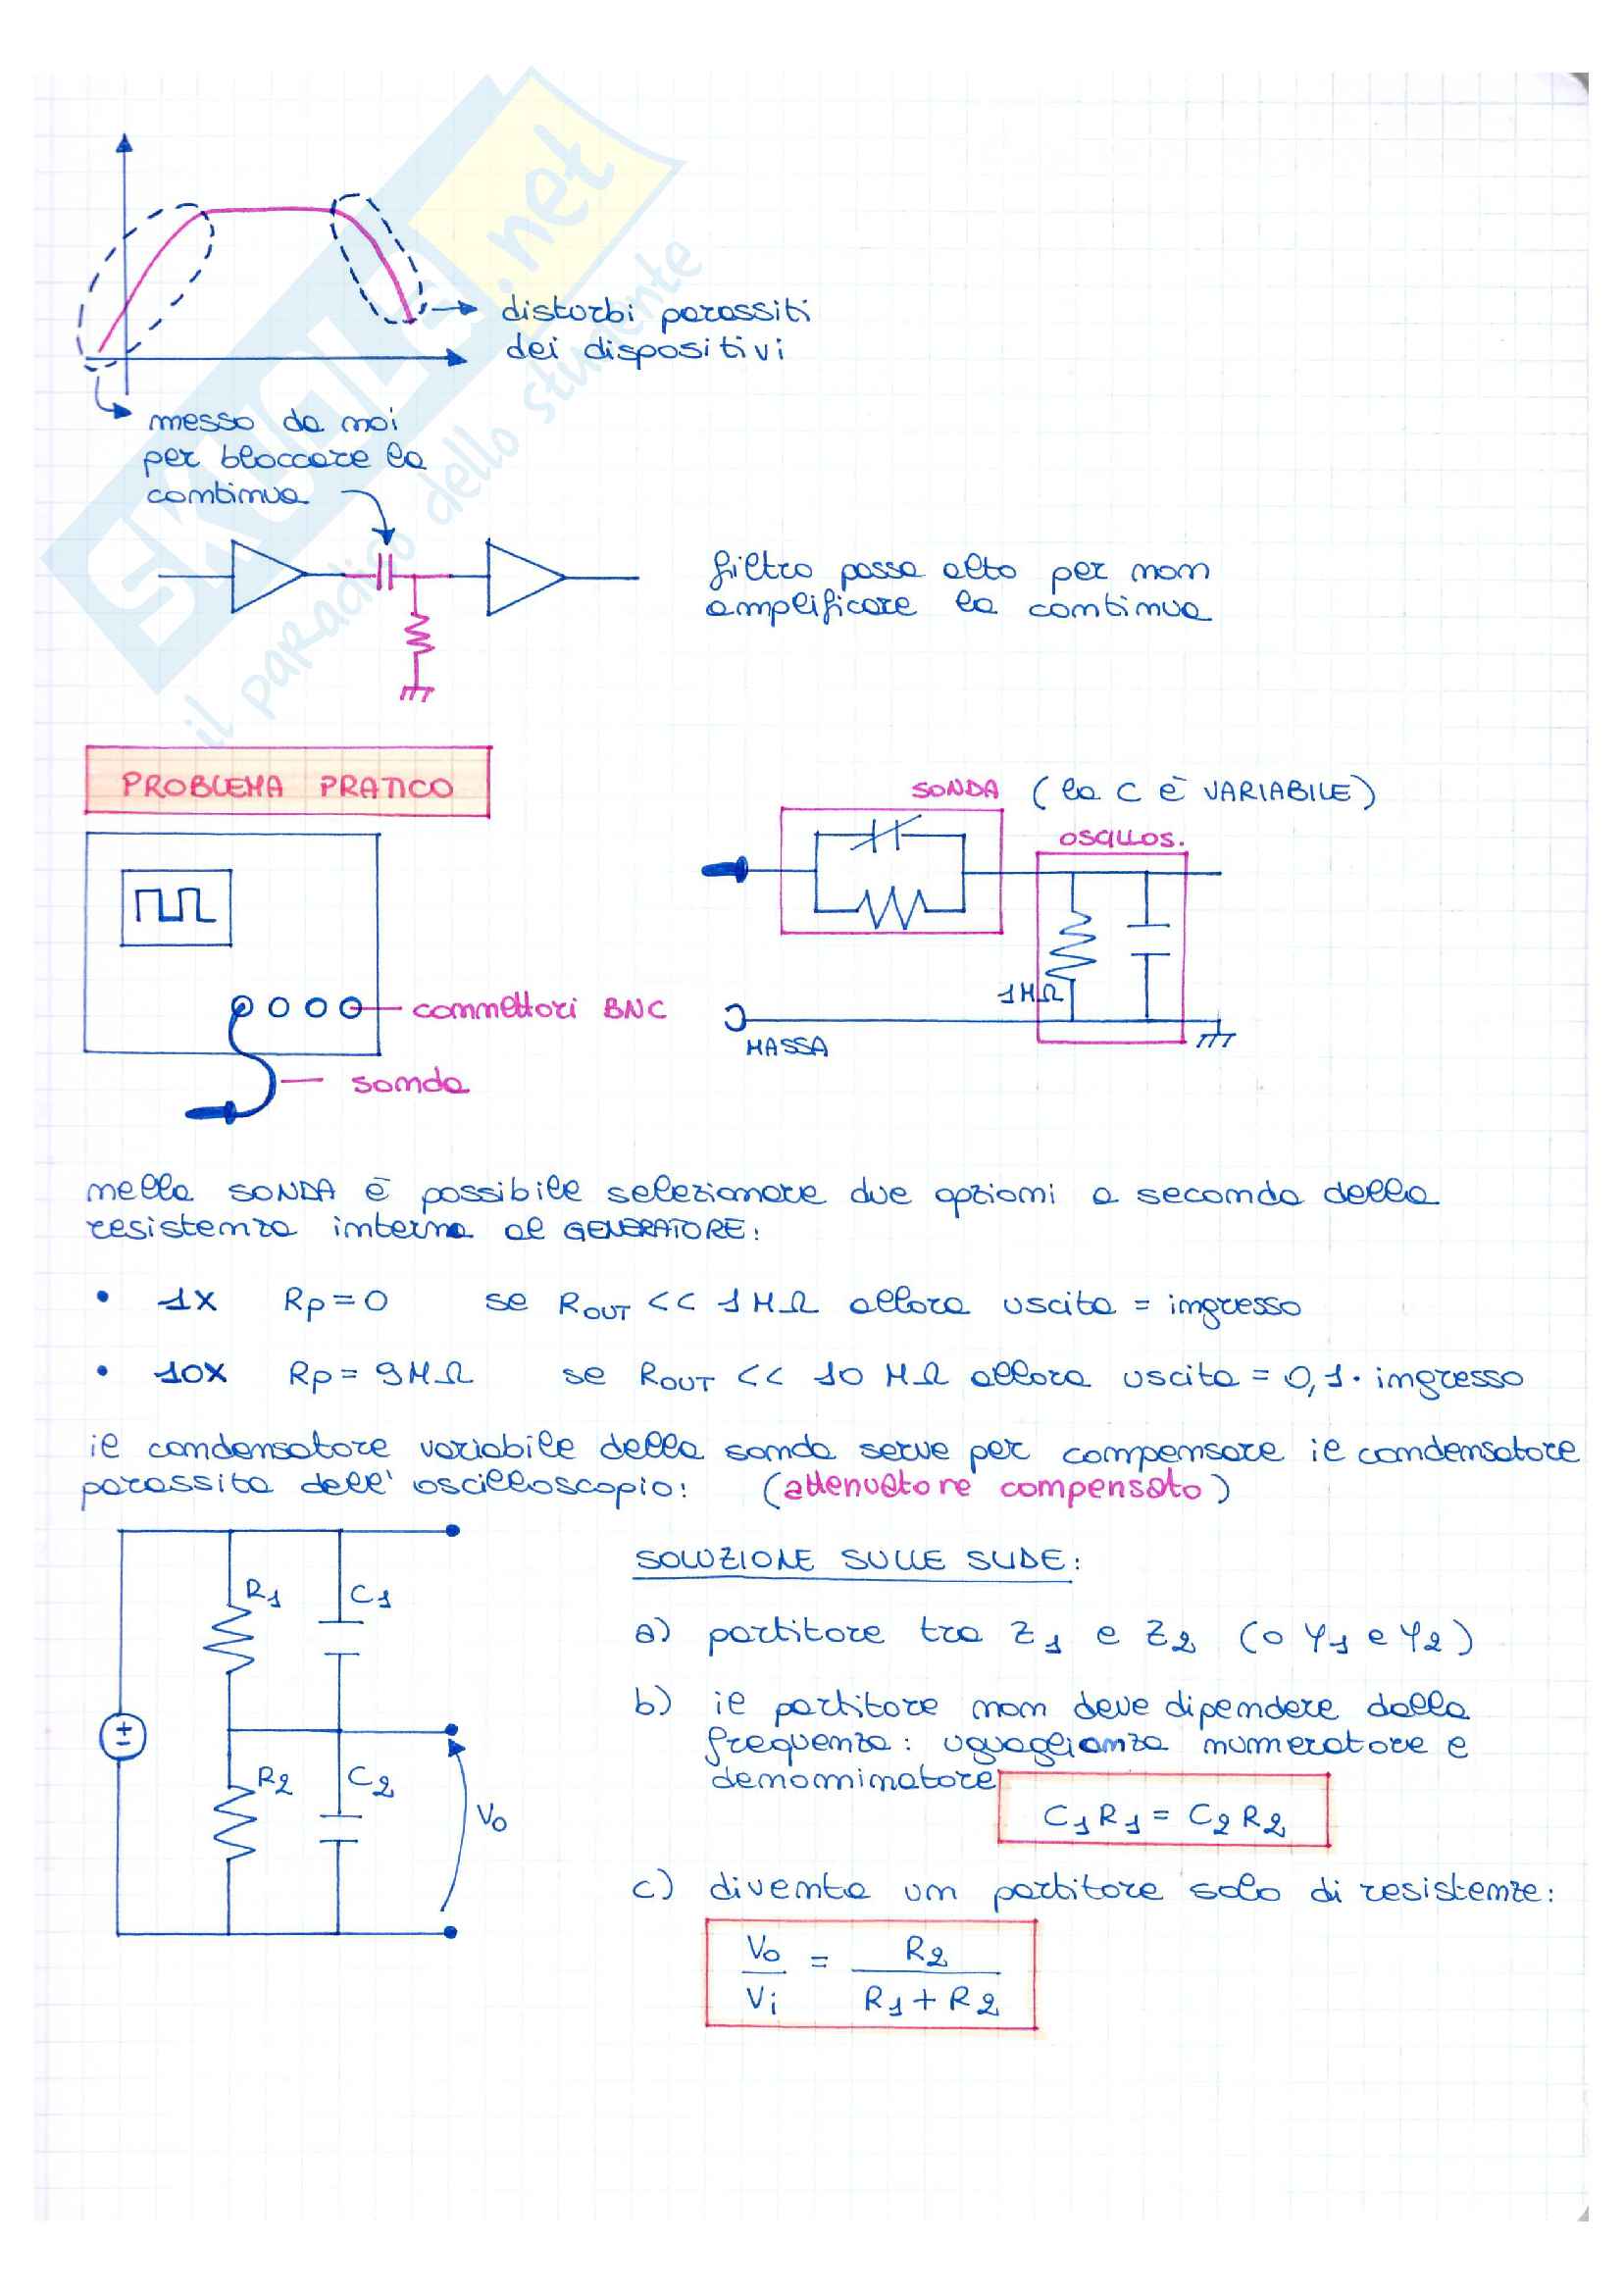 SKUOLA.net
il paradiso dello studente
disturbi parassiti
dei dispositivi
messo da noi
per bloccare la
continua
filtro passa alto per non
amplificare la continua
PROBLEMA PRATICO
SONDA (la C È VARIABILE)
OSCILLOS.
1MΩ
connettori BNC
MASSA
sonda
nella SONDA è possibile selezionare due opzioni a seconda della
resistenza interna al GENERATORE:
• 1X Rp=0 se ROUT << 1MΩ allora uscita = ingresso
• 10X Rp=9MΩ se ROUT << 10 MΩ allora uscita = 0,1 · ingresso
il condensatore variabile della sonda serve per compensare il condensatore
parassita dell'oscilloscopio: (attenuatore compensato)
SOLUZIONE SULLE SLIDE:
R1 C1
a) partitore tra Z1 e Z2 (o Y1 e Y2)
b) il partitore non deve dipendere dalla
frequenza: uguaglianza numeratore e
denominatore
R2 C2
Vo
C1R1 = C2R2
c) diventa un partitore solo di resistenze:
Vo/Vi = R2/(R1+R2)